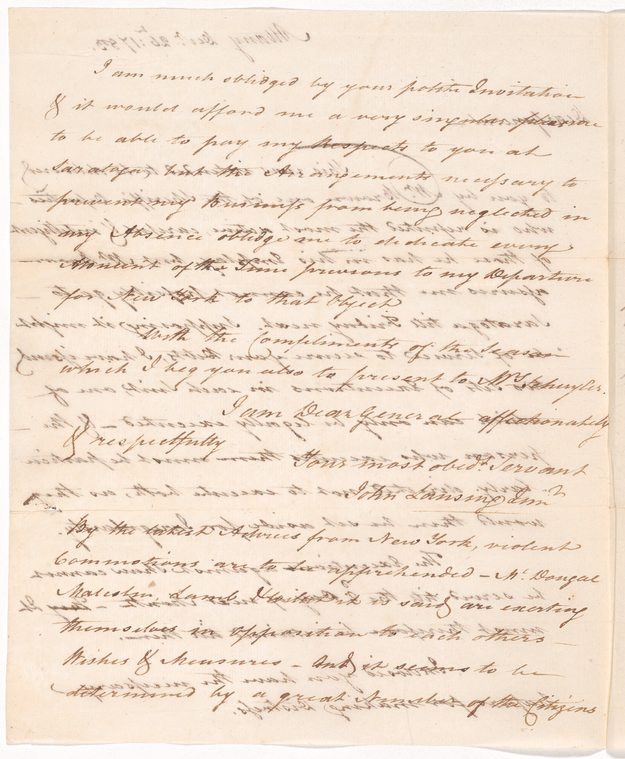 I am much obliged by your polite Invitation
& it would afford me a very singular pleasure
to be able to pay my Respects to you at
Saratoga but the Arrangements necessary to
prevent my Business from being neglected in
my Absence oblige me to dedicate every
Moment of the Time previous to my Departure
for New York to that Object
With the Compliments of the Season
which I beg you also to present to Mrs. Schuyler.
I am Dear General affectionately
& respectfully
Your most obedt. Servant
John Lansing Junr.
By the latest Advices from New York, violent
Commotions are to be apprehended – Mc Dougal
Malcolm, Lamb & it is said are exerting
themselves in opposition to each others
Wishes & Measures – And it seems to be
determined by a great Number of the Citizens